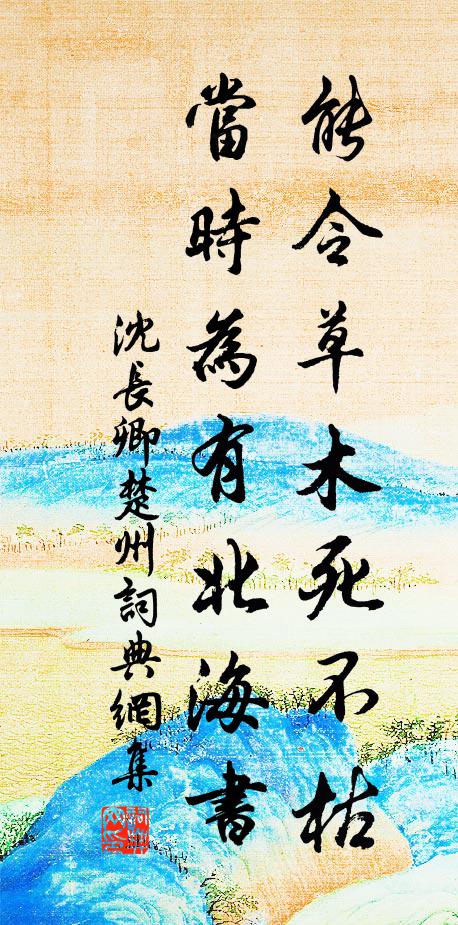 能令草木死不枯
當時為有北海書
沈長卿楚州詞典網集